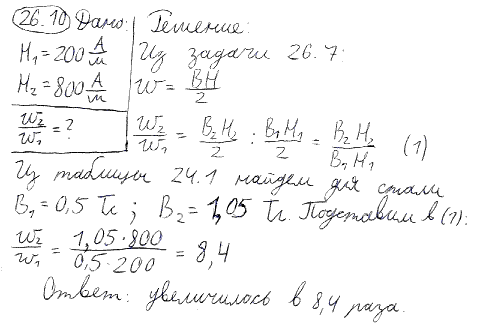 26.10 Дано: Решение:
H₁=200 А/м Из задачи 26.7:
H₂=800 А/м w = BH/2
w₂/w₁ = ? w₂/w₁ = B₂H₂/2 : B₁H₁/2 = B₂H₂/B₁H₁ (1)
Из таблицы 24.1 найдем для стали
B₁ = 0,5 Тл; B₂ = 1,05 Тл. Подставим в (1):
w₂/w₁ = 1,05·800/0,5·200 = 8,4
Ответ: увеличилось в 8,4 раза.